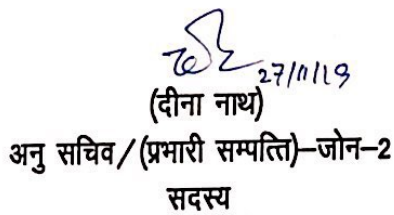 27/11/19
(दीना नाथ)
अनु सचिव/(प्रभारी सम्पत्ति)–जोन–2
सदस्य